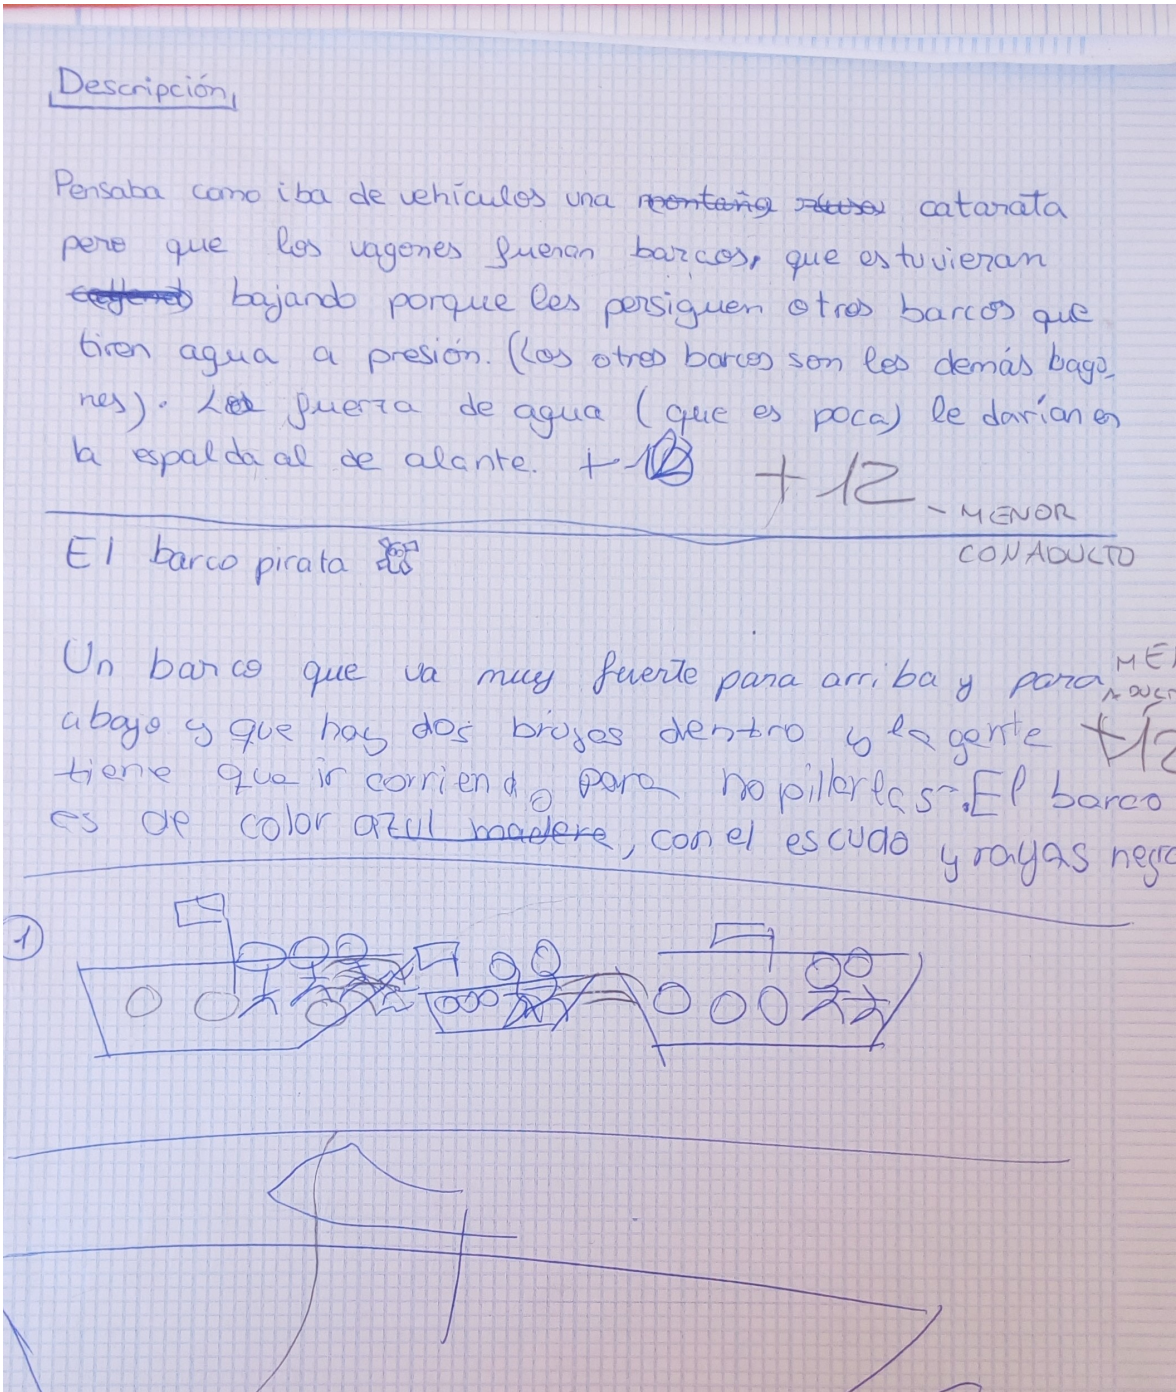 Descripción
Pensaba como iba de vehículos una montaña rusa catarata
pero que los vagones fueran barcos, que estuvieran
bajando porque les persiguen otros barcos que
tiren agua a presión. (Los otros barcos son los demás bago-
nes). La fuerza de agua (que es poca) le darían en
la espalda al de alante. +12
+12 - MENOR
CON ADULTO
El barco pirata
Un barco que va muy fuerte para arriba y para
abajo y que hay dos brujas dentro y la gente
tiene que ir corriendo para no pillarlas. El barco
es de color azul madera, con el escudo y rayas negra
+12
1